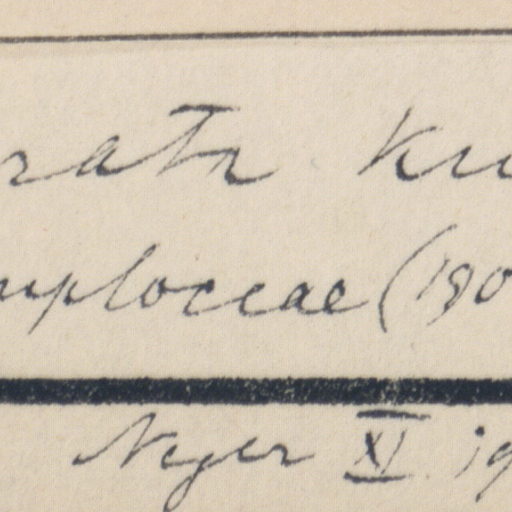 rata Ku
mploceae (190
Neger XI 19